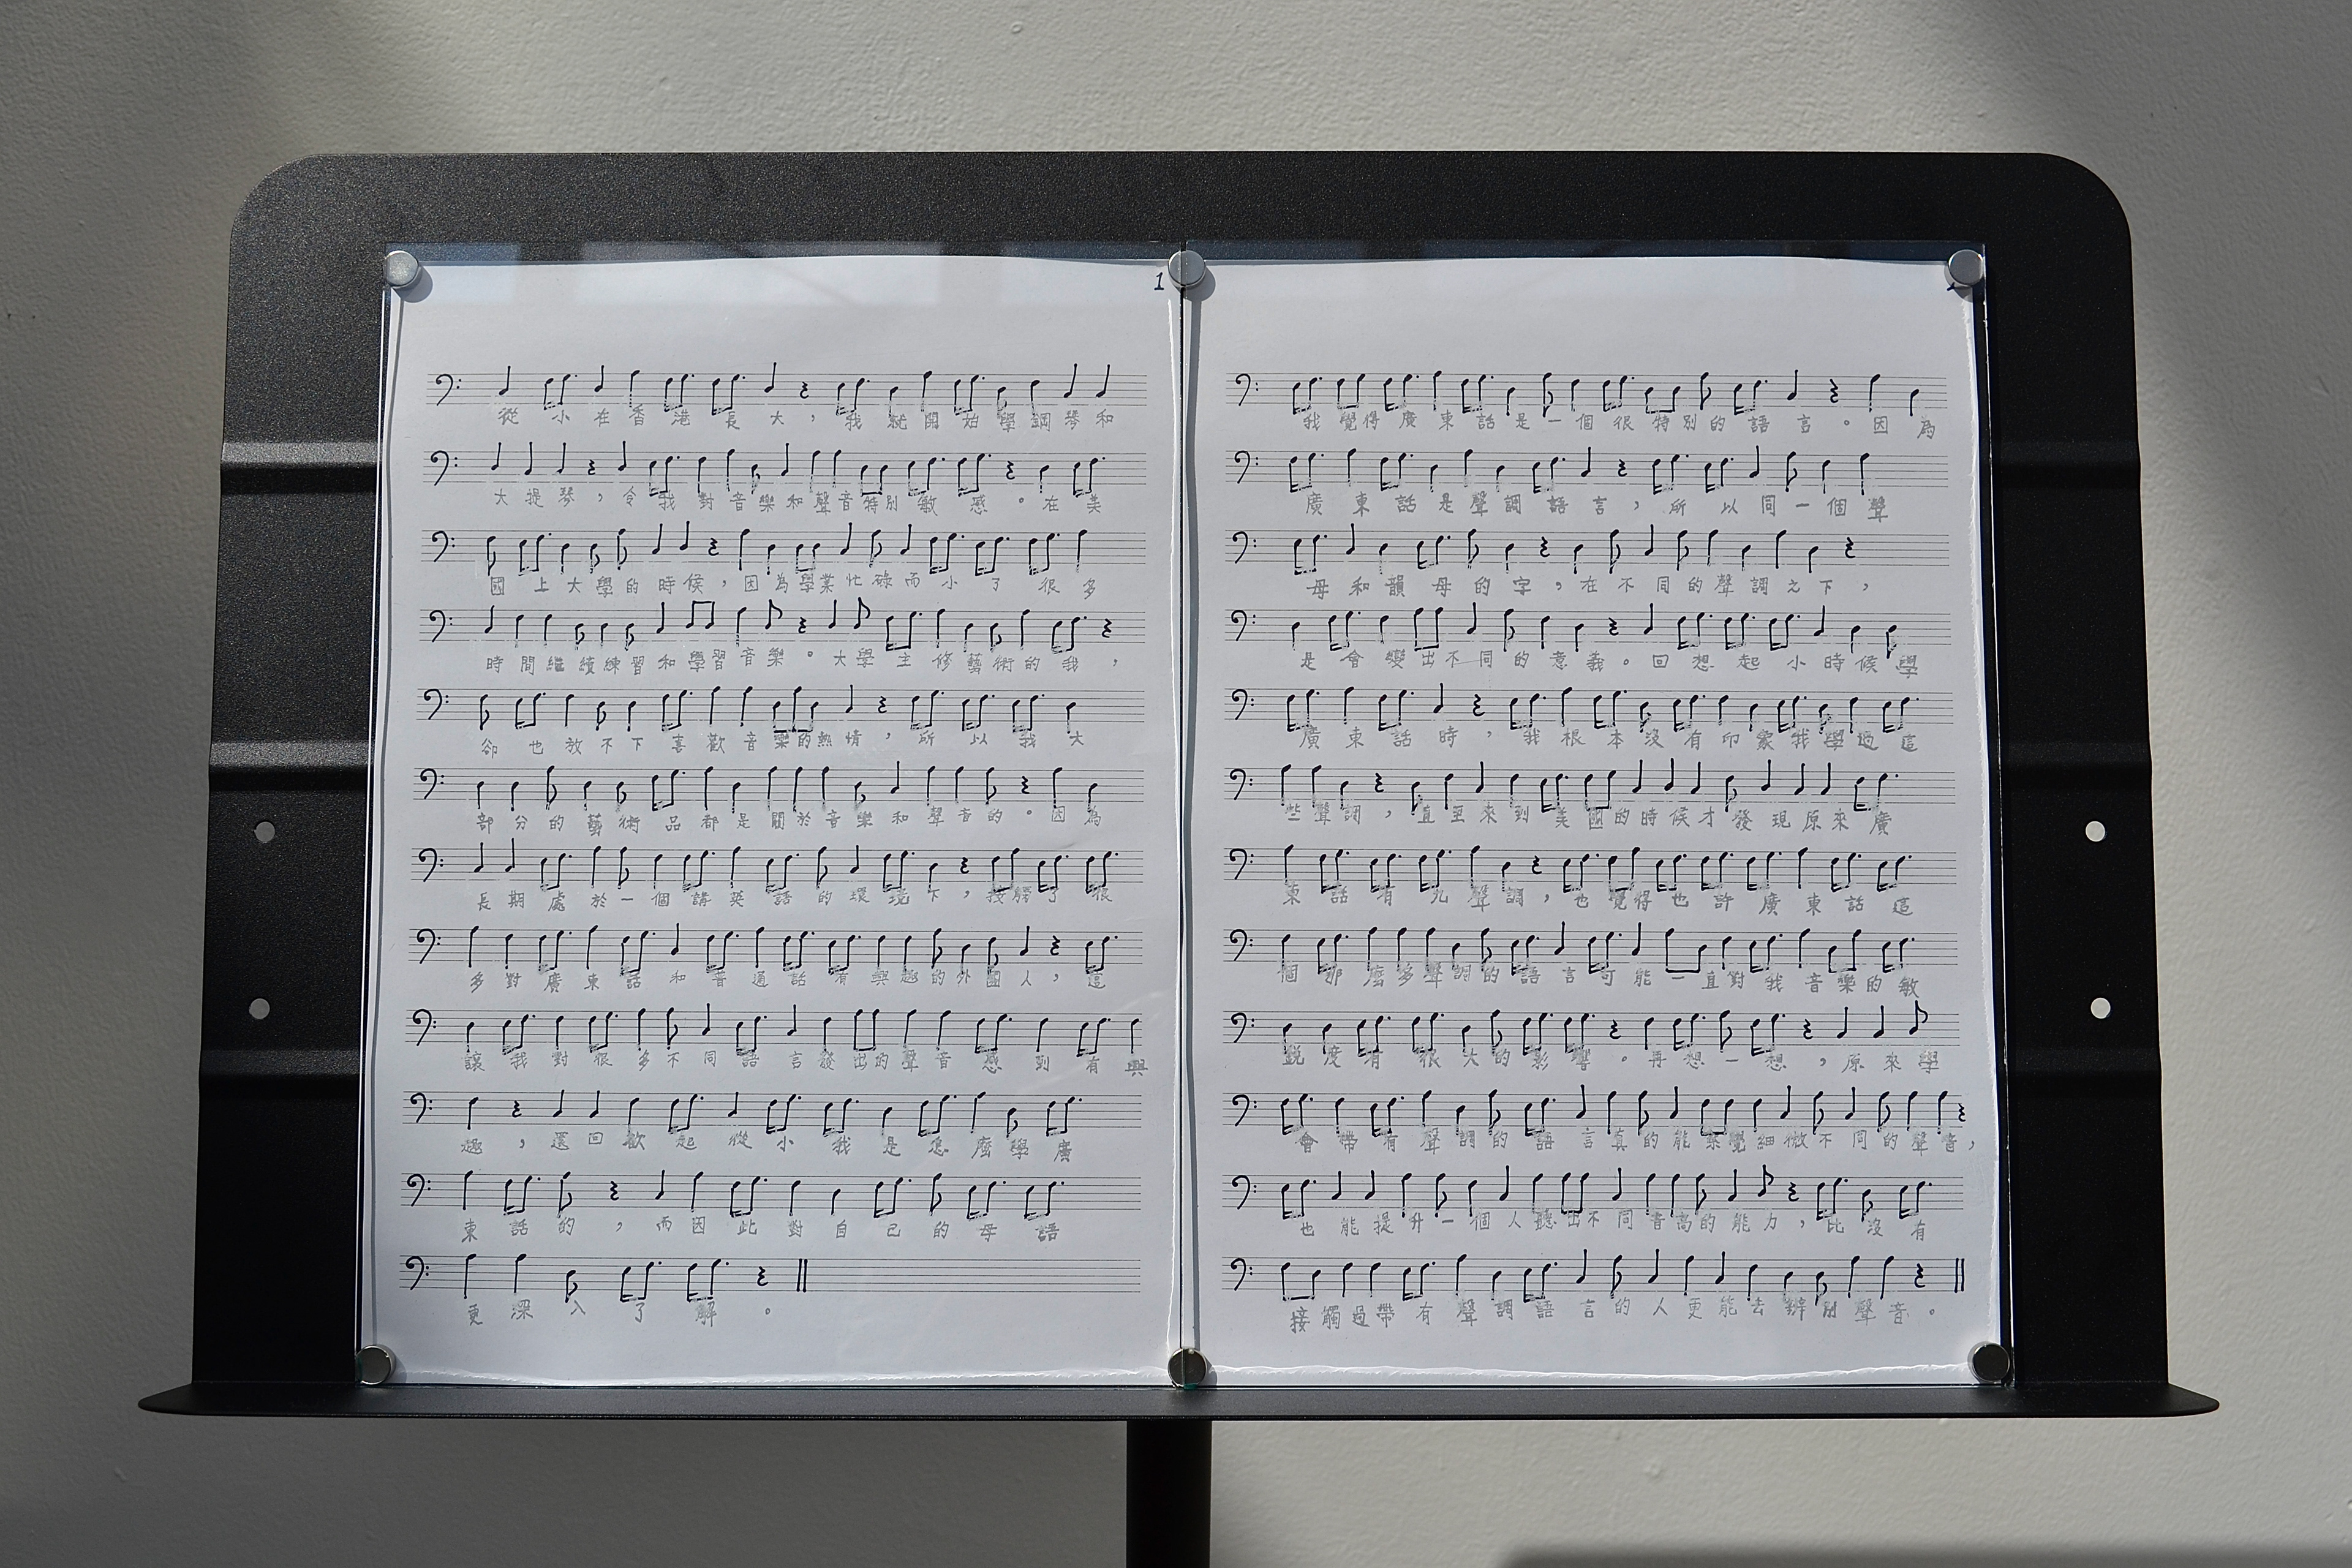 1
從小在香港長大，我就開始學鋼琴和
大提琴，令我對音樂和聲音特別敏感。在美
國上大學的時候，因為學業忙碌而小了很多
時間繼續練習和學習音樂。大學主修藝術的我，
卻也放不下喜歡音樂的熱情，所以我大
部分的藝術品都是關於音樂和聲音的。因為
長期處於一個講英話的環境下，接觸了很
多對廣東話和普通話有興趣的外國人，這
讓我對很多不同語言發出的聲音感到有興
趣，還回歡起從小我是怎麼學廣
東話的，而因此對自己的母語
更深入了解。
我覺得廣東話是一個很特別的語言。因為
廣東話是聲調語言，所以同一個聲
母和韻母的字，在不同的聲調之下，
是會變出不同的意義。回想起小時候學
廣東話時，我根本沒有印象我學過這
些聲調，直至來到美國的時候才發現原來廣
東話有九聲調，也覺得也許廣東話這
個那麼多聲調的語言可能一直對我音樂的敏
銳度有很大的影響。再想一想，原來學
會帶有聲調的語言真的能察覺細微不同的聲音，
也能提升一個人聽出不同音高的能力，比沒有
接觸過帶有聲調語言的人更能去辨別聲音。